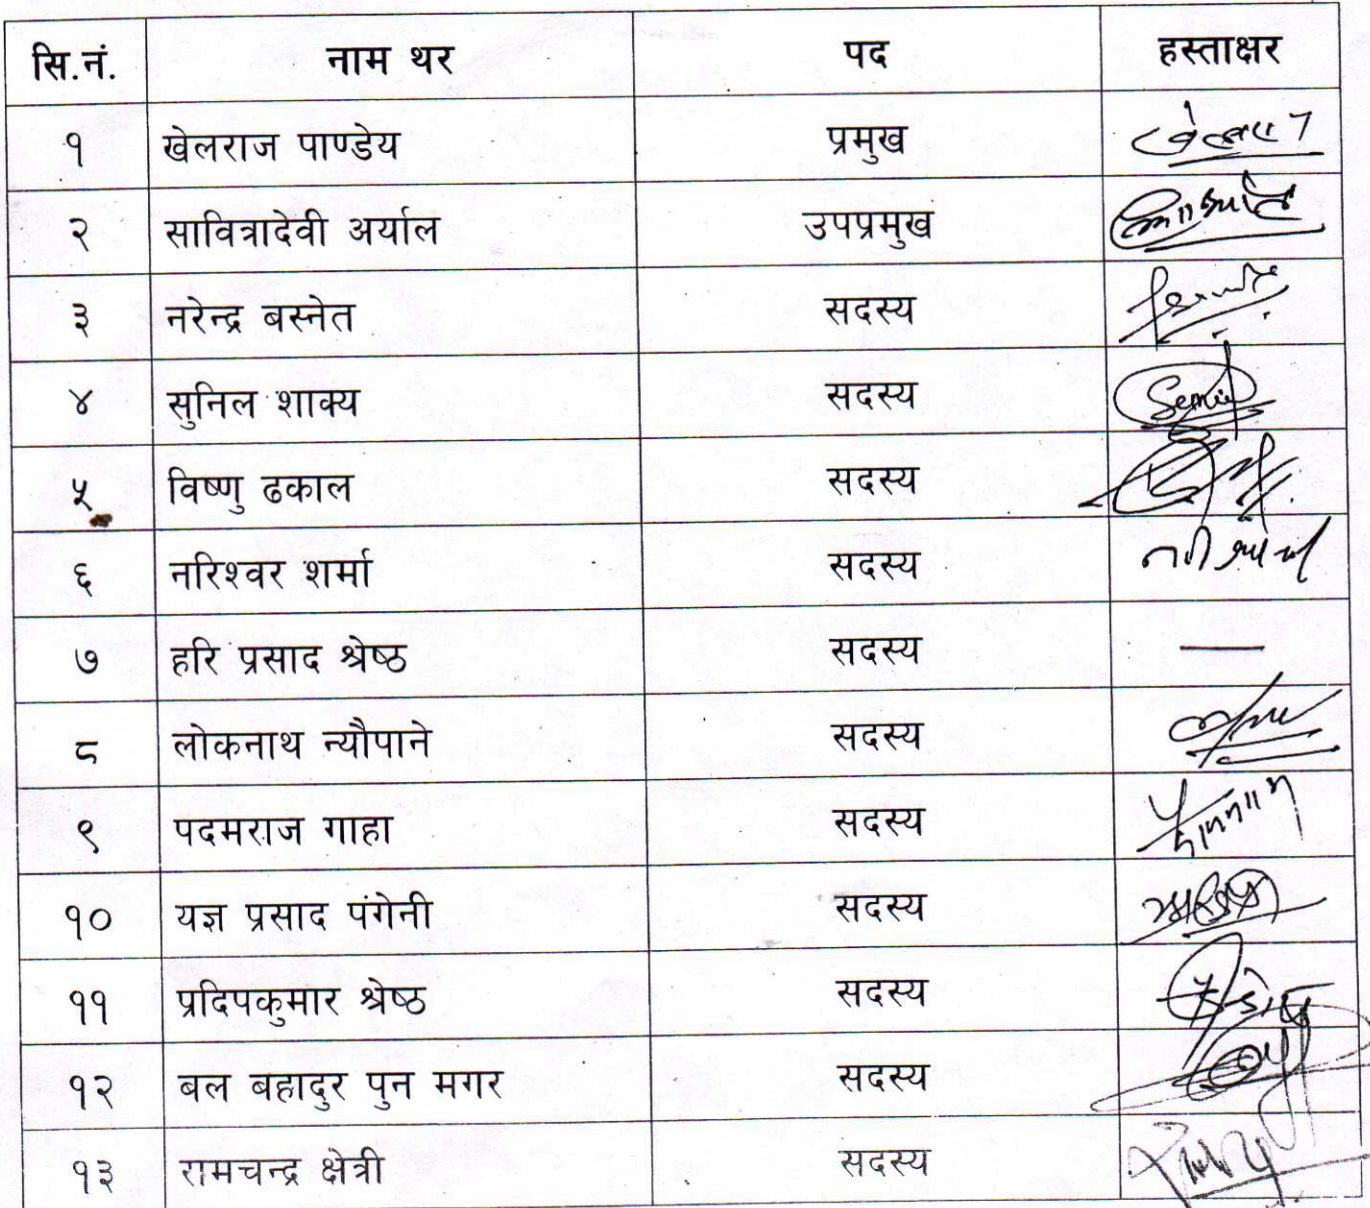 सि.नं. नाम थर पद हस्ताक्षर
१ खेलराज पाण्डेय प्रमुख
२ सावित्रादेवी अर्याल उपप्रमुख
३ नरेन्द्र बस्नेत सदस्य
४ सुनिल शाक्य सदस्य
५ विष्णु ढकाल सदस्य
६ नरिश्वर शर्मा सदस्य
७ हरि प्रसाद श्रेष्ठ सदस्य —
८ लोकनाथ न्यौपाने सदस्य
९ पदमराज गाहा सदस्य
१० यज्ञ प्रसाद पंगेनी सदस्य
११ प्रदिपकुमार श्रेष्ठ सदस्य
१२ बल बहादुर पुन मगर सदस्य
१३ रामचन्द्र क्षेत्री सदस्य